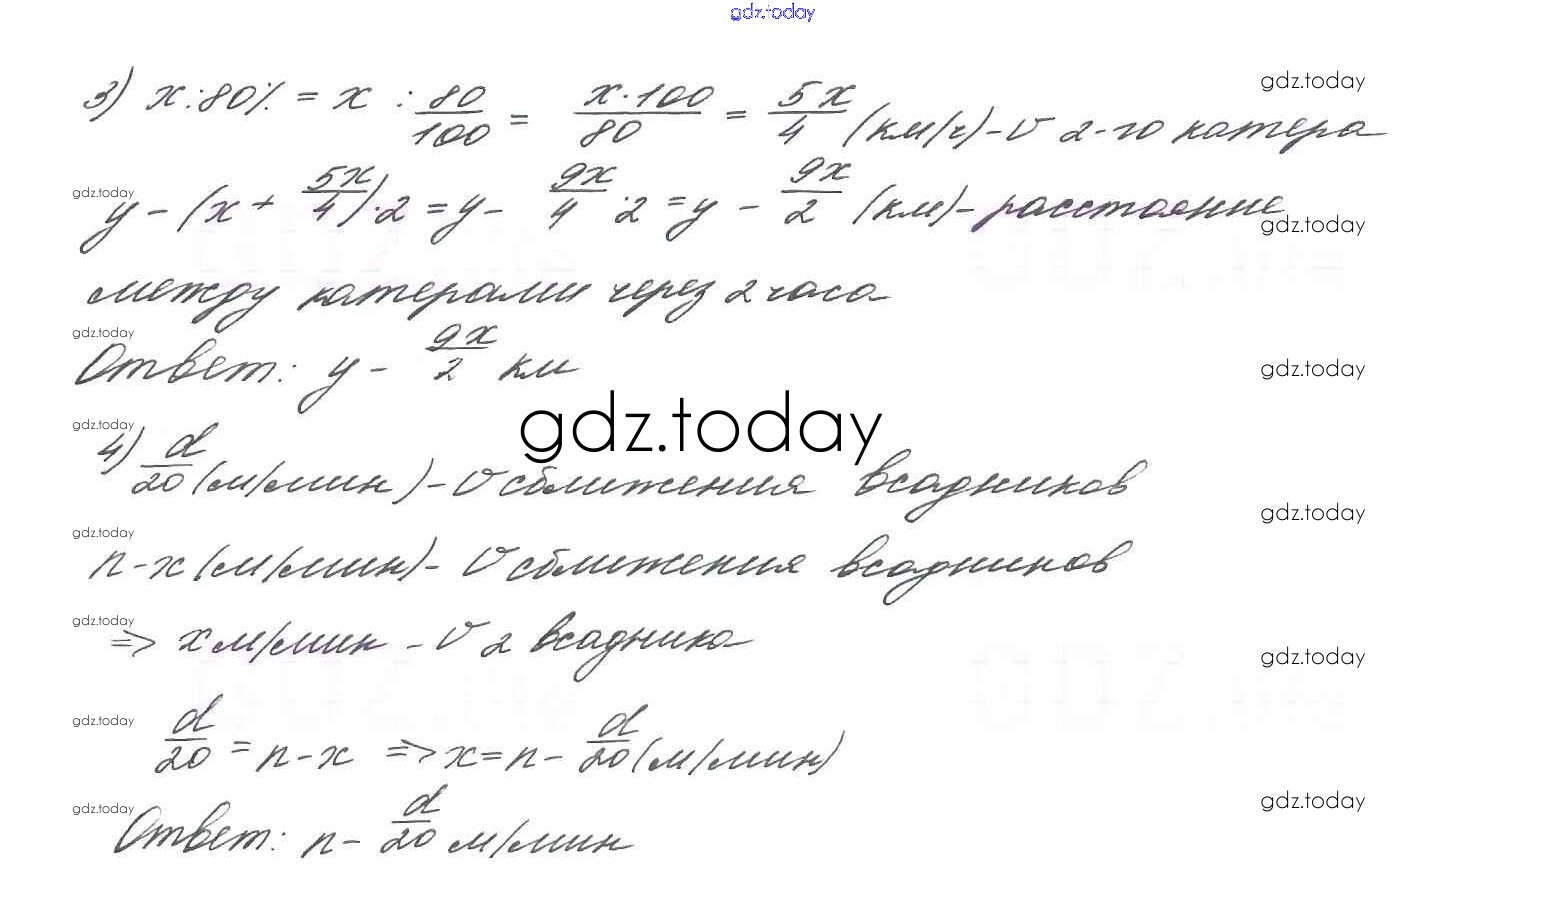 gdz.today
3) x : 80% = x : 80/100 = x·100/80 = 5x/4 (км/ч) - v 2-го катера
gdz.today
y - (x + 5x/4)·2 = y - 9x/4 · 2 = y - 9x/2 (км) - расстояние
gdz.today
gdz.today
между катерами через 2 часа
gdz.today
Ответ: y - 9x/2 км
gdz.today
gdz.today
gdz.today
4) d/20 (м/мин) - v сближения всадников
gdz.today
gdz.today
n - x (м/мин) - v сближения всадников
gdz.today
=> x м/мин - v 2 всадника
gdz.today
gdz.today
d/20 = n - x => x = n - d/20 (м/мин)
gdz.today
gdz.today
Ответ: n - d/20 м/мин